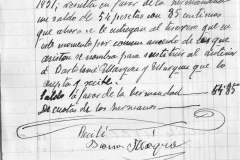 1891, resulta en favor de la hermandad
un saldo de 54 pesetas con 85 centimos
que ahora se le entregan al tesorero que en
este momento por comun acuerdo de los que
asisten se nombra para sustituir al anterior
á Bartolomé Marquez y Marquez que lo
acepta y recibe.
Saldo á favor de la hermandad 54'85
de cuotas de los hermanos
Recibí
Marquez